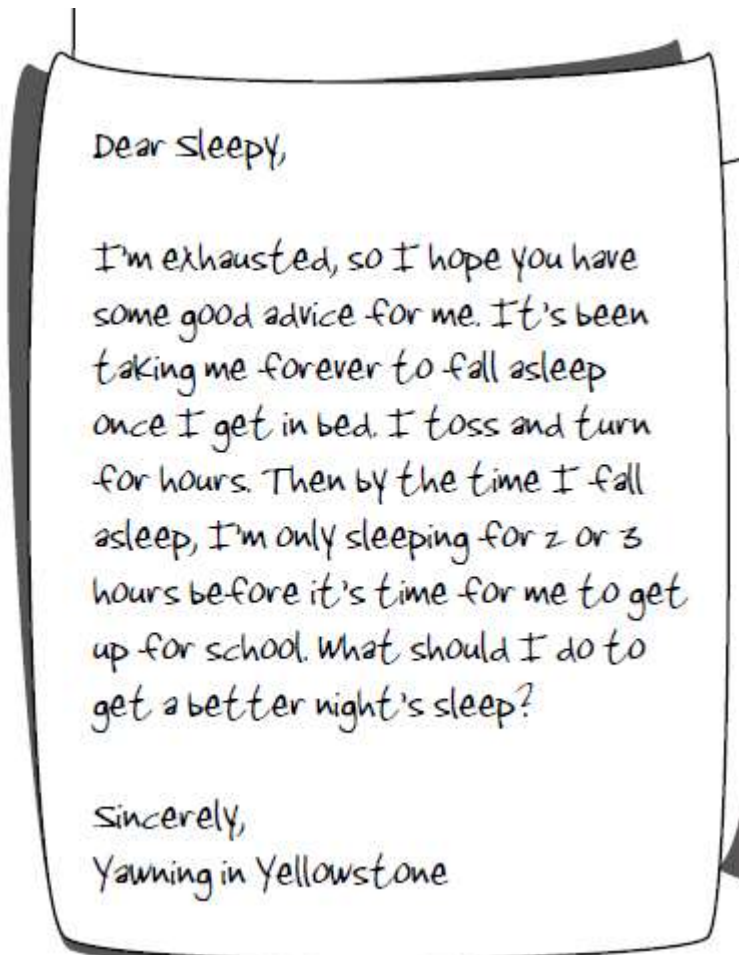 Dear Sleepy,
I'm exhausted, so I hope you have
some good advice for me. It's been
taking me forever to fall asleep
once I get in bed. I toss and turn
for hours. Then by the time I fall
asleep, I'm only sleeping for 2 or 3
hours before it's time for me to get
up for school. What should I do to
get a better night's sleep?
Sincerely,
Yawning in Yellowstone